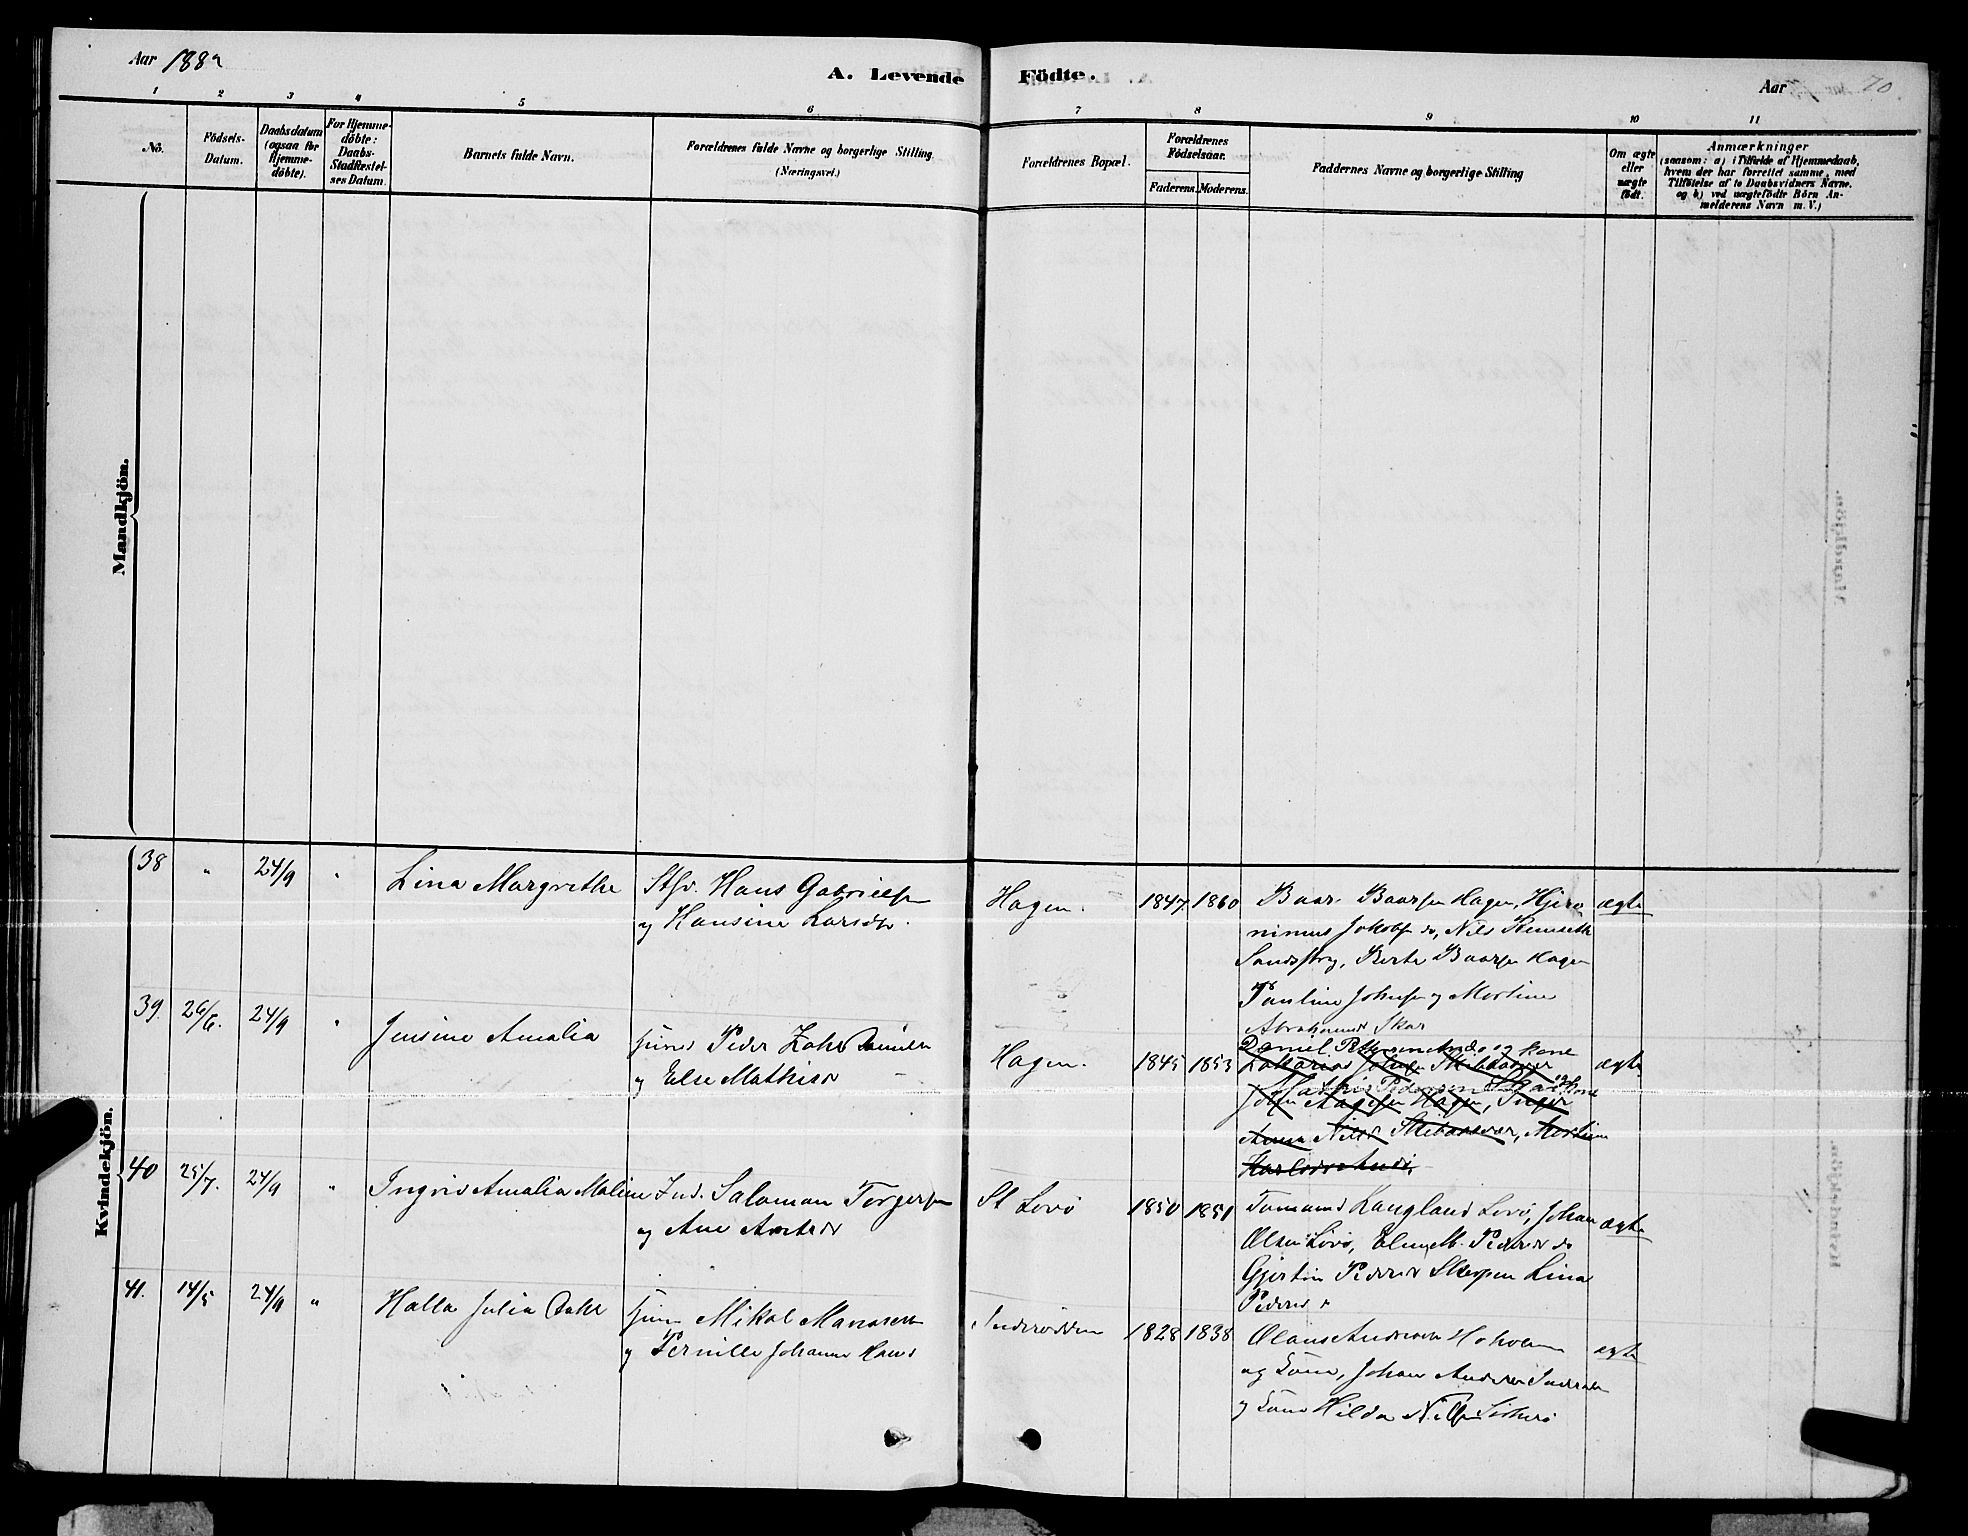 Aar 1882
A. Levende Födte.
Aar 70.
1 2 3 4 5 6 7 8 9 10 11
No.
Födsels-Datum.
Daabsdatum (ogsaa for Hjemme-döbte).
For Hjemme-döbte: Daabs-Stadfæstel-ses Datum.
Barnets fulde Navn.
Forældrenes fulde Navne og borgerlige Stilling. (Næringsvei.)
Forældrenes Bopæl.
Forældrenes Födselsaar.
Faderens. Moderens.
Faddernes Navne og borgerlige Stilling
Om ægte eller uægte födt.
Anmærkninger
(saasom: a) i Tilfælde af Hjemmedaab,
hvem der har forrettet samme, med
Tilföielse af to Daabsvidners Navne.
og b) ved uægtefödte Börn An-
melderens Navn m. V.)
Mandkjön.
Kvindekjön.
38 " 24/9 " Lina Margrethe
Hans Gabrielsen
og Hansine Larsdr.
Hagen. 1847. 1860
Baar Baarsen Hagen, Hjero
nimus Jakobs do, Nils
Berte Baarsen Hagen
Pauline Johnsen og Mortine
Abrahamsd Skar
ægte
39. 26/6. 24/9 " Jensine Amalia
Peder Zahr Danielsen
og Else Mathisdr
Hagen. 1845 1853
Daniel Pettersen og kone
Pedersen og Kone
John Hagen, Inger
Anna Nilsd
ægte
40 25/7. 24/9 " Ingrid Amalia Maline
Ind. Salomon Torgersen
og Ane
St Lovö 1850 1851
Langland Lovö, Johan
Olsen Lovö, Elen M. Pedersd do
Gjertine Pedersd Lina
Pedersd
ægte
41. 14/5 24/9 " Halla Julia Dahl
Mikal
og Pernille Johanna Hansd
1828 1838
Olaus Andersen
og Kone, Johan Andersen
og Kone Hilda Nilsen
ægte